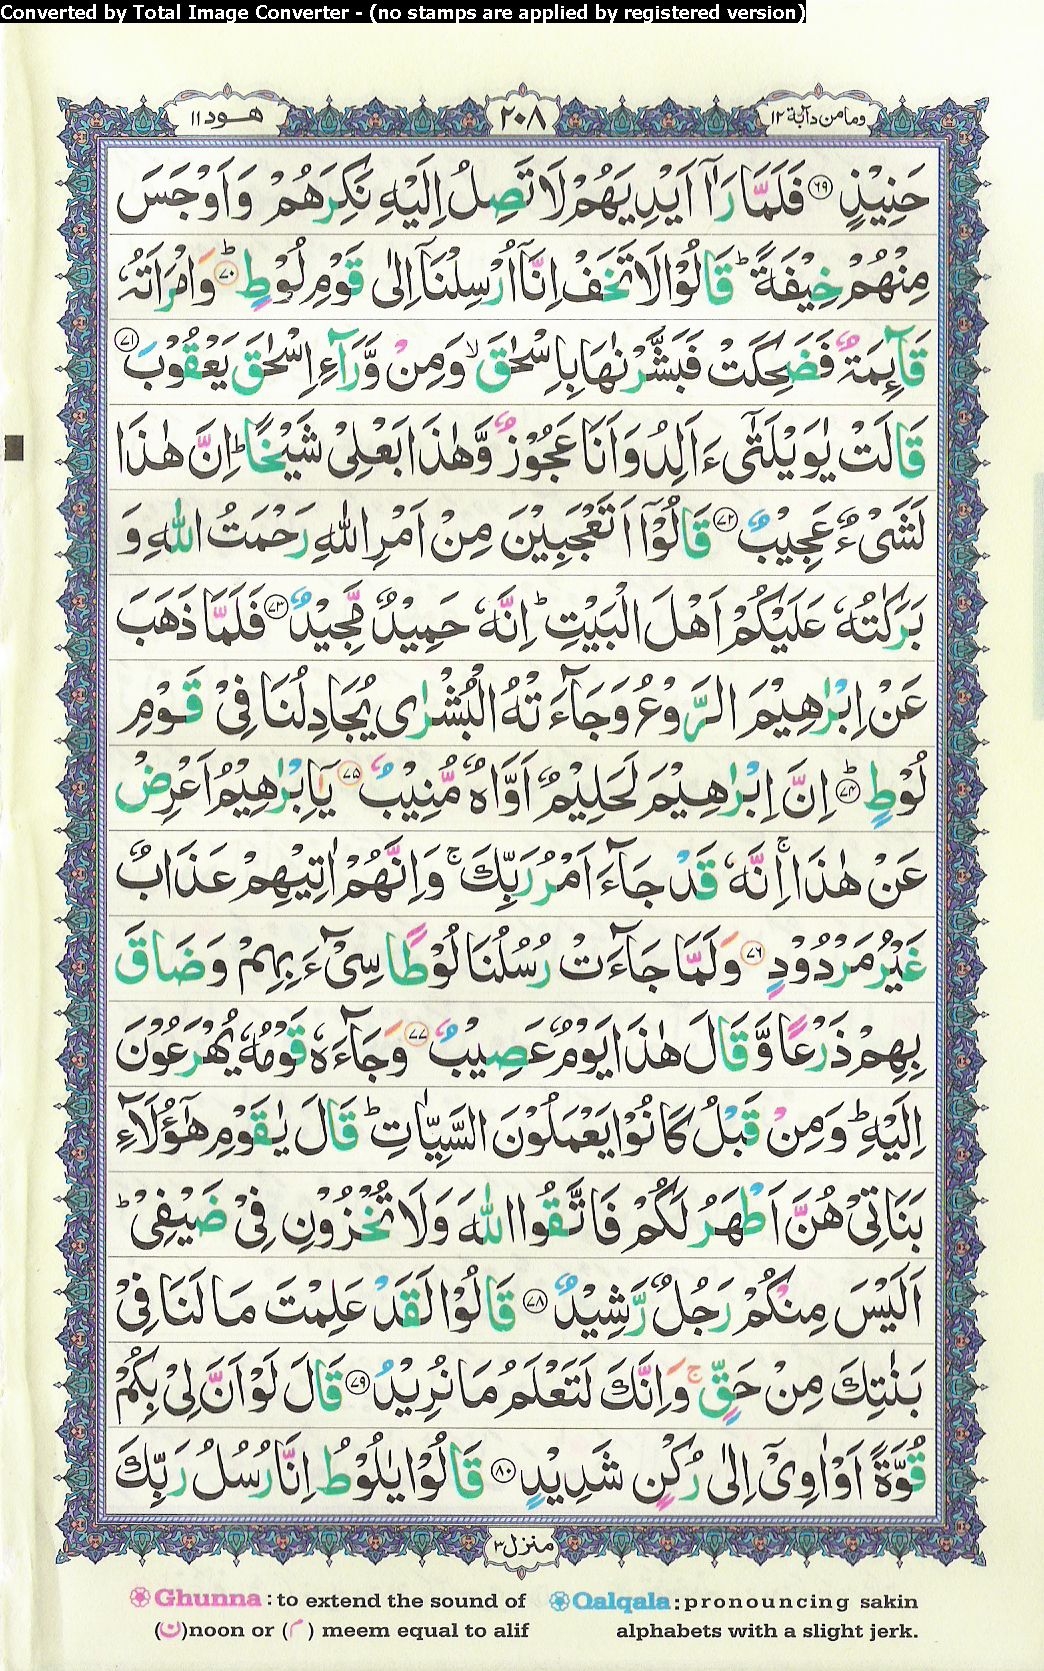 Converted by Total Image Converter - (no stamps are applied by registered version)
وما من دآبة ١٢
٢٠٨
هود ١١
حَنِيْذٍ ﴿٦٩﴾ فَلَمَّا رَاٰۤ اَيْدِيَهُمْ لَا تَصِلُ اِلَيْهِ نَكِرَهُمْ وَاَوْجَسَ
مِنْهُمْ خِيْفَةً ؕ قَالُوْا لَا تَخَفْ اِنَّاۤ اُرْسِلْنَاۤ اِلٰى قَوْمِ لُوْطٍ ؕ﴿٧٠﴾ وَامْرَاَتُهٗ
قَآئِمَةٌ فَضَحِكَتْ فَبَشَّرْنٰهَا بِاِسْحٰقَ ۙ وَمِنْ وَّرَآءِ اِسْحٰقَ يَعْقُوْبَ ﴿٧١﴾
قَالَتْ يٰوَيْلَتٰٓى ءَاَلِدُ وَاَنَا عَجُوْزٌ وَّهٰذَا بَعْلِيْ شَيْخًا ؕ اِنَّ هٰذَا
لَشَىْءٌ عَجِيْبٌ ﴿٧٢﴾ قَالُوْۤا اَتَعْجَبِيْنَ مِنْ اَمْرِ اللّٰهِ رَحْمَتُ اللّٰهِ وَ
بَرَكٰتُهٗ عَلَيْكُمْ اَهْلَ الْبَيْتِ ؕ اِنَّهٗ حَمِيْدٌ مَّجِيْدٌ ﴿٧٣﴾ فَلَمَّا ذَهَبَ
عَنْ اِبْرٰهِيْمَ الرَّوْعُ وَجَآءَتْهُ الْبُشْرٰى يُجَادِلُنَا فِيْ قَوْمِ
لُوْطٍ ؕ﴿٧٤﴾ اِنَّ اِبْرٰهِيْمَ لَحَلِيْمٌ اَوَّاهٌ مُّنِيْبٌ ﴿٧٥﴾ يٰۤاِبْرٰهِيْمُ اَعْرِضْ
عَنْ هٰذَا ۚ اِنَّهٗ قَدْ جَآءَ اَمْرُ رَبِّكَ ۚ وَاِنَّهُمْ اٰتِيْهِمْ عَذَابٌ
غَيْرُ مَرْدُوْدٍ ﴿٧٦﴾ وَلَمَّا جَآءَتْ رُسُلُنَا لُوْطًا سِىْٓءَ بِهِمْ وَضَاقَ
بِهِمْ ذَرْعًا وَّقَالَ هٰذَا يَوْمٌ عَصِيْبٌ ﴿٧٧﴾ وَجَآءَهٗ قَوْمُهٗ يُهْرَعُوْنَ
اِلَيْهِ ؕ وَمِنْ قَبْلُ كَانُوْا يَعْمَلُوْنَ السَّيِّاٰتِ ؕ قَالَ يٰقَوْمِ هٰٓؤُلَآءِ
بَنَاتِيْ هُنَّ اَطْهَرُ لَكُمْ فَاتَّقُوا اللّٰهَ وَلَا تُخْزُوْنِ فِيْ ضَيْفِيْ ؕ
اَلَيْسَ مِنْكُمْ رَجُلٌ رَّشِيْدٌ ﴿٧٨﴾ قَالُوْا لَقَدْ عَلِمْتَ مَا لَنَا فِيْ
بَنٰتِكَ مِنْ حَقٍّ ۚ وَاِنَّكَ لَتَعْلَمُ مَا نُرِيْدُ ﴿٧٩﴾ قَالَ لَوْ اَنَّ لِيْ بِكُمْ
قُوَّةً اَوْ اٰوِيْۤ اِلٰى رُكْنٍ شَدِيْدٍ ﴿٨٠﴾ قَالُوْا يٰلُوْطُ اِنَّا رُسُلُ رَبِّكَ
منزل ٣
Ghunna : to extend the sound of (ن)noon or (م) meem equal to alif
Qalqala : pronouncing sakin alphabets with a slight jerk.